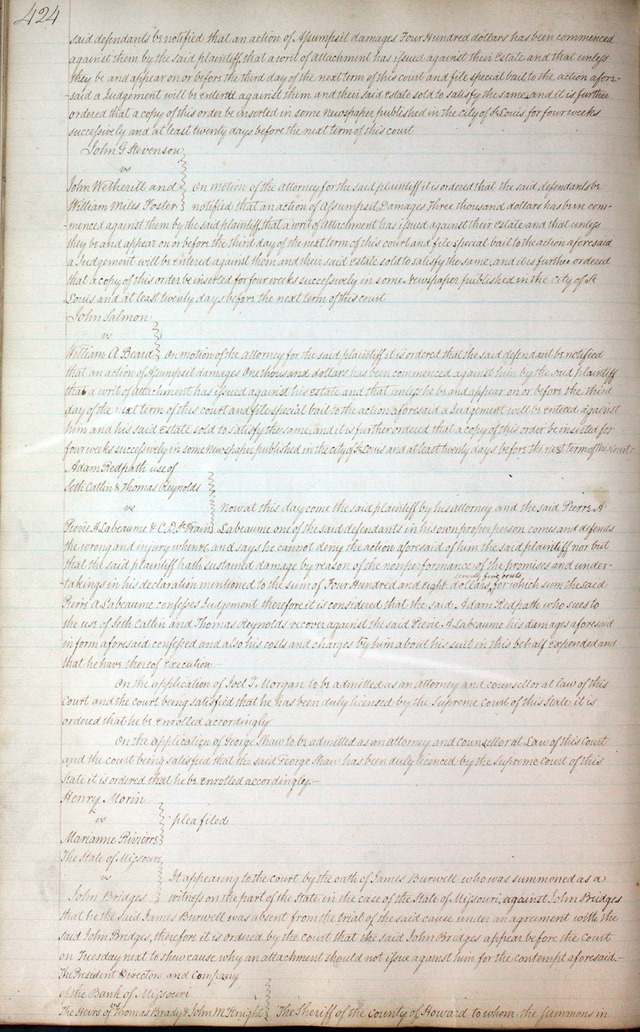 424
said defendants be notified that an action of Assumpsit damages Four Hundred dollars has been commenced
against them by the said plaintiff, that a writ of attachment has issued against their Estate and that unless
they be and appear on or before the third day of the next term of this court and file special bail to the action afore-
-said a Judgement will be entered against them and their said estate sold to satisfy the same, and it is further
ordered that a copy of this order be inserted in some Newspaper published in the City of St Louis for four weeks
successively and at least twenty days before the next term of this court
John G Stevenson
vs
John Wetherill and On motion of the attorney for the said plaintiff it is ordered that the said defendants be
William Miles Foster notified that an action of Assumpsit Damages Three thousand dollars has been com-
-menced against them by the said plaintiff, that a writ of attachment has issued against their estate and that unless
they be and appear on or before the third day of the next term of this court and file special bail to the action aforesaid
a Judgement will be entered against them and their said estate sold to satisfy the same, and it is further ordered
that a copy of this order be inserted for four weeks successively in some Newspaper published in the city of St
Louis and at least twenty days before the next term of this court
John Salmon
vs
William A Beard On motion of the attorney for the said plaintiff it is ordered that the said defendant be notified
that an action of Assumpsit damages One thousand dollars has been commenced against him by the said plaintiff
that a writ of attachment has issued against his estate and that unless he be and appear on or before the third
day of the next term of this court and file special bail to the action aforesaid a Judgement will be entered against
him and his said estate sold to satisfy the same, and it is further ordered that a copy of this order be inserted for
four weeks successively in some Newspaper published in the city of St Louis and at least twenty days before the next term of this Court-
Adam Redpath use of
Seth Catlin & Thomas Reynolds
vs Now at this day come the said plaintiff by his attorney and the said Pierre A
Pierre A Labeaume & C. D. St Vrain Labeaume one of the said defendants in his own proper person comes and defends
the wrong and injury when &c and says he cannot deny the action aforesaid of him the said plaintiff nor but
that the said plaintiff hath sustained damage by reason of the nonperformance of the promises and under-
seventy five cents
-takings in his declaration mentioned to the sum of Four Hundred and eight dollars for which sum the said
Pierre A Labeaume confesses Judgement therefore it is considered that the said Adam Redpath who sues to
the use of Seth Catlin and Thomas Reynolds recover against the said Pierre A Labeaume his damages aforesaid
in form aforesaid confessed and also his costs and charges by him about his suit in this behalf expended and
that he have thereof Execution
On the application of Joel T. Morgan to be admitted as an attorney and counsellor at law of this
Court and the court being satisfied that he has been duly licensed by the Supreme Court of this State it is
ordered that he be Enrolled accordingly
On the application of George Shaw to be admitted as an attorney and counsellor at Law of this Court
and the court being satisfied that the said George Shaw has been duly licenced by the Supreme Court of this
State it is ordered that he be Enrolled accordingly.-
Henry Morin
vs plea filed
Marianne Rivierre
The State of Missouri
vs It appearing to the court by the oath of James Burwell who was summoned as a
John Bridges witness on the part of the State in the case of the State of Missouri against John Bridges
that he the said James Burwell was absent from the trial of the said cause under an agreement with the
said John Bridges, therefore it is ordered by the court that the said John Bridges appear before the Court
on Tuesday next to shew cause why an attachment should not issue against him for the contempt aforesaid.-
The President Directors and Company
of the Bank of Missouri
The Heirs of Thomas Brady & John McKnight The Sheriff of the county of Howard to whom the summons in